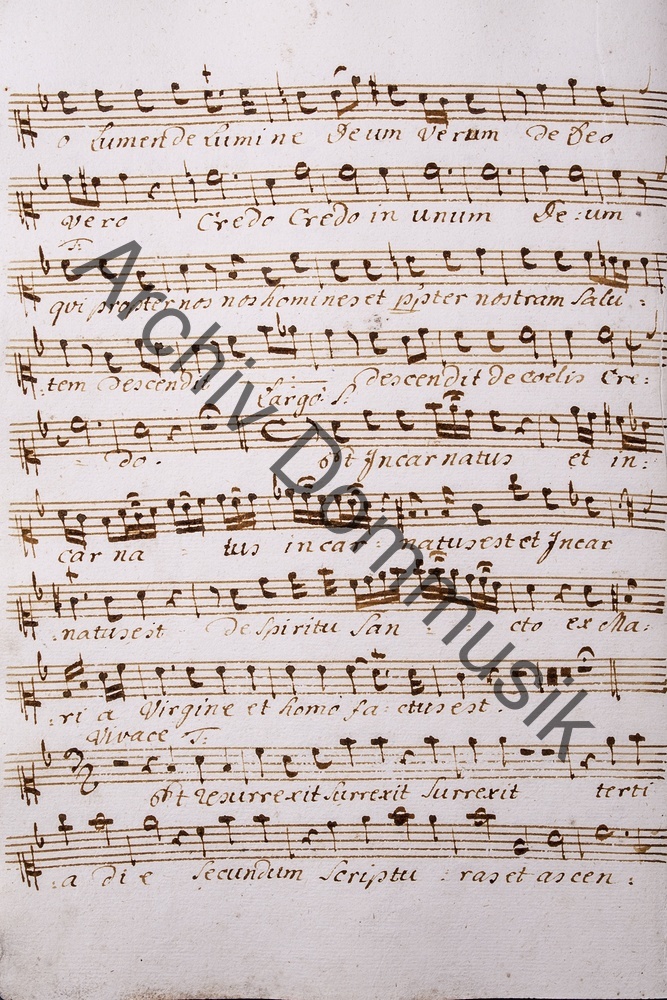 o Lumen de Lumine Deum Verum de Deo
Vero Credo Credo in unum De:um
T:
qui propter nos nos homines et ppter nostram Salu:
:tem Descendit descendit de coelis Cre:
Largo S:
:do. Et Incarnatus et in:
car na : tus in car : natus est et Incar
:natus est de Spiritu San : : cto ex Ma:
:ri a Virgine et homo fa:ctus est
Vivace T:
Et resurrexit surrexit surrexit terti
:a di e secundum Scriptu : ras et ascen:
Archiv Dommusik